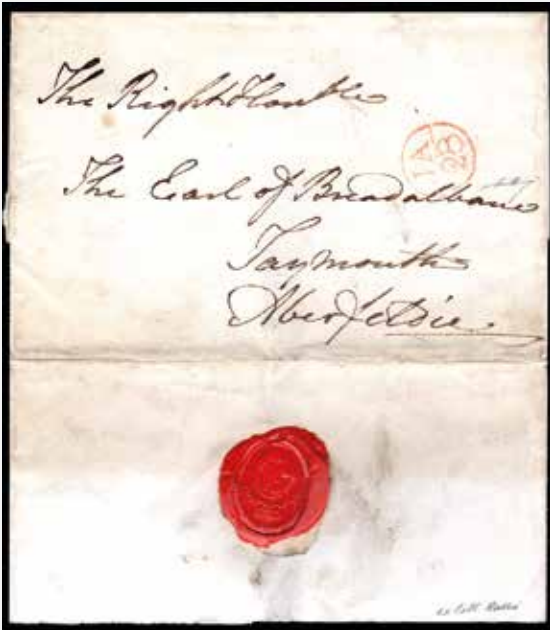 The Right Honble
IA
28
The Earl of Breadalbane
Taymouth
Aberfeldie
ex Coll.